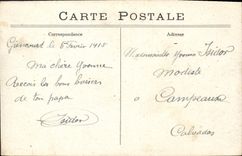 CARTE POSTALE
Correspondance
Adresse
le 8 Février 1915
Ma chère Yvonne
Reçois les bons baisers
de ton papa
Isidor
Mademoiselle Yvonne Isidor
Modiste
à
Campeaux
Calvados